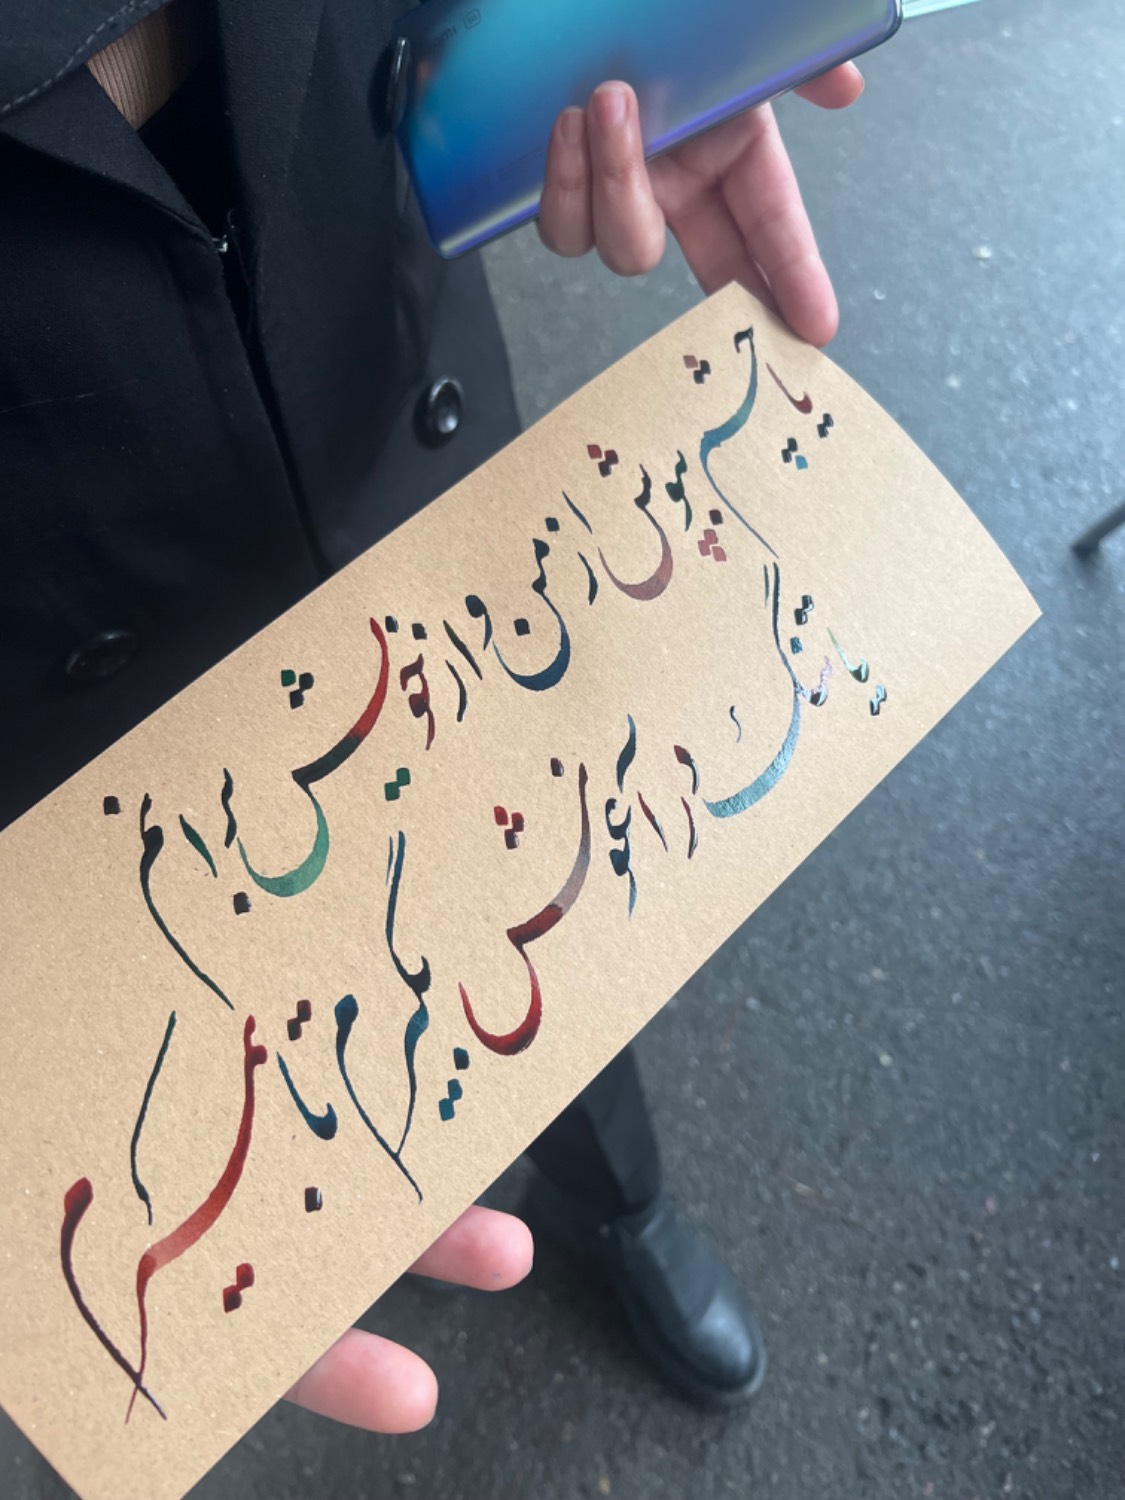 یا چشم بپوش از من و از خویش برانم
یا تنگ در آغوش بگیرم تا بمیرم